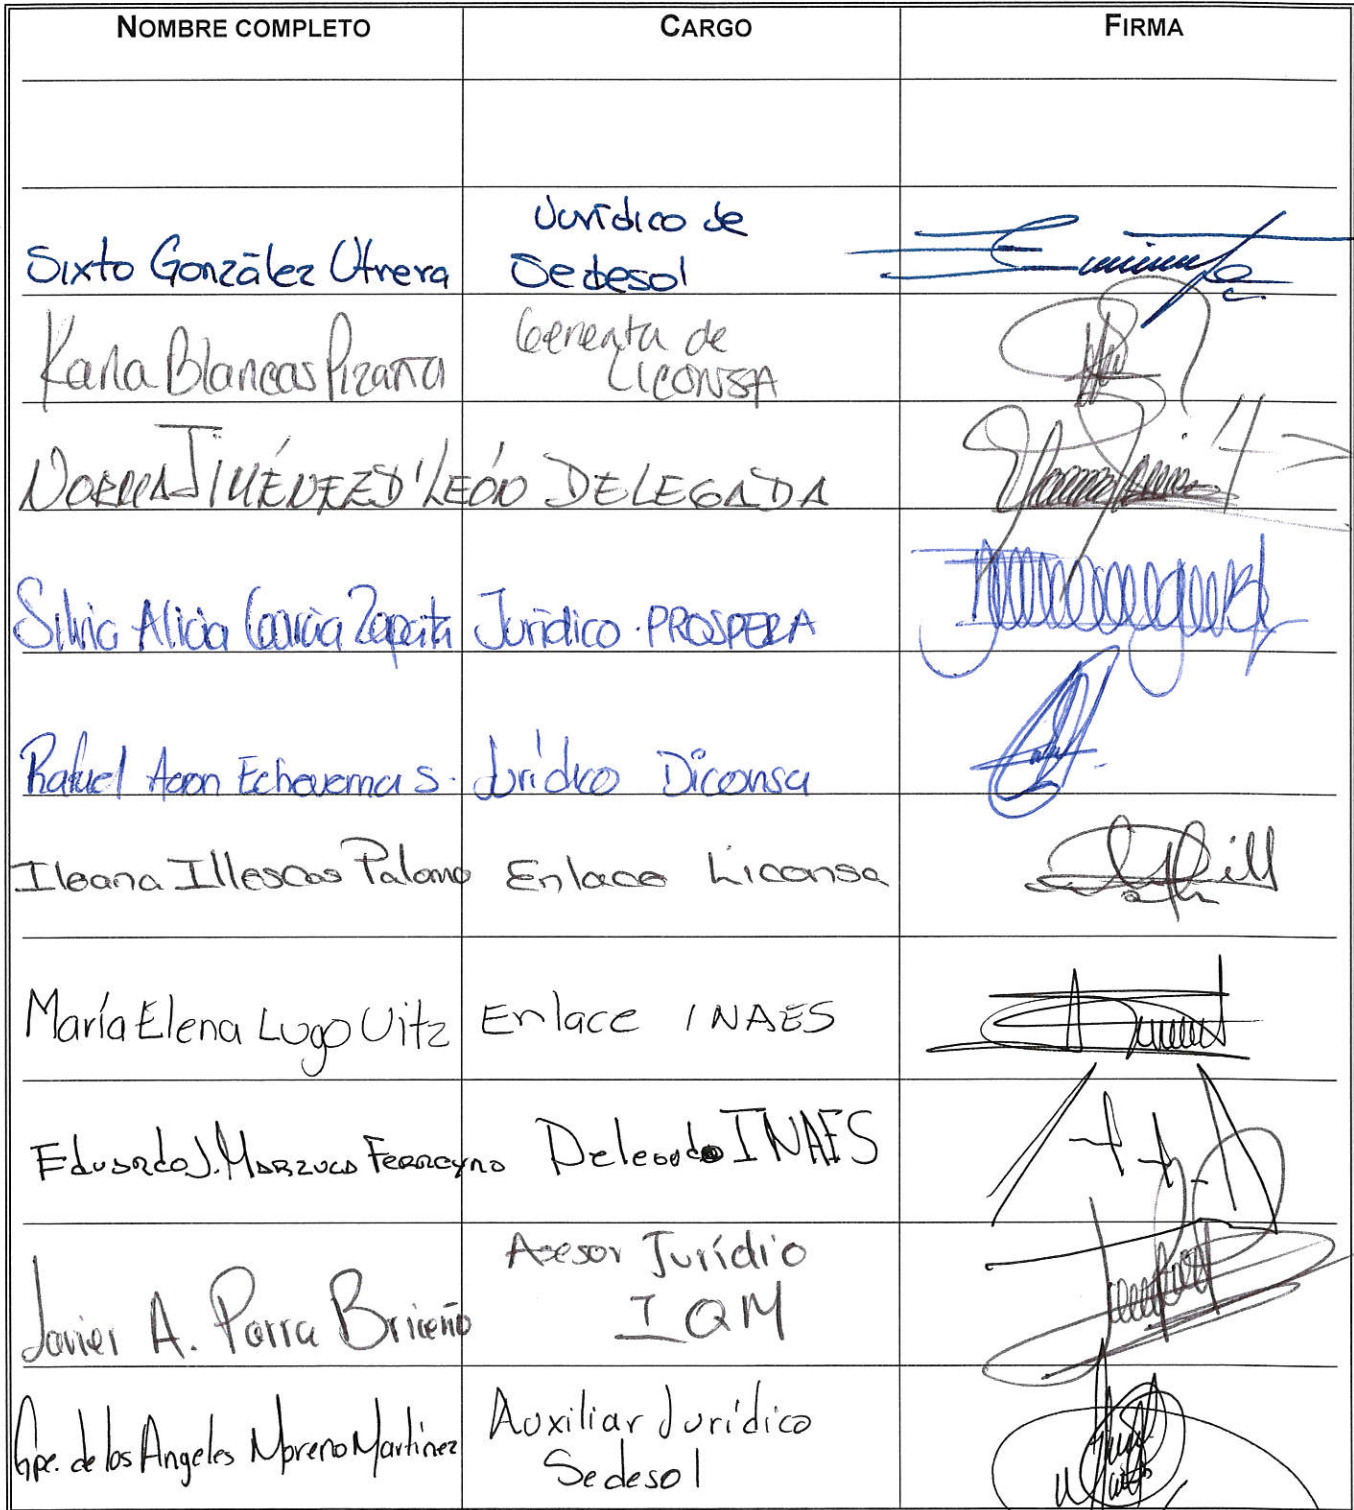 NOMBRE COMPLETO CARGO FIRMA
Jurídico de
Sixto González Utrera Sedesol
Gerenta de
Karla Blancas Pizaña LICONSA
NORMA JIMÉNEZ D'LEÓN DELEGADA
Silvia Alicia García Zapata Jurídico PROSPERA
Rafael Aaron Echeverria S. Jurídico Diconsa
Ileana Illescas Palomo Enlace Liconsa
María Elena Lugo Uitz Enlace INAES
Eduardo J. Marzuca Ferreyro Delegado INAES
Asesor Jurídio
Javier A. Parra Briceño IQM
Auxiliar Jurídico
Gpe. de los Angeles Moreno Martínez Sedesol